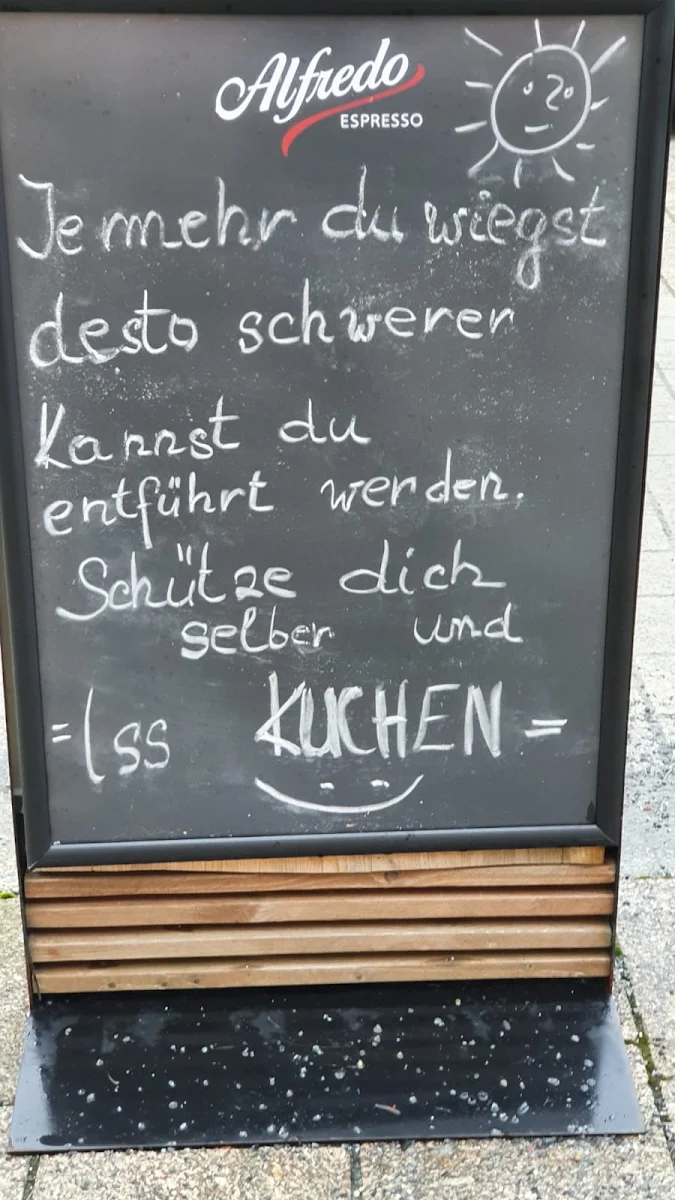 Alfredo
ESPRESSO
Je mehr du wiegst
desto schwerer
Kannst du
entführt werden.
Schütze dich
selber und
=Iss KUCHEN=